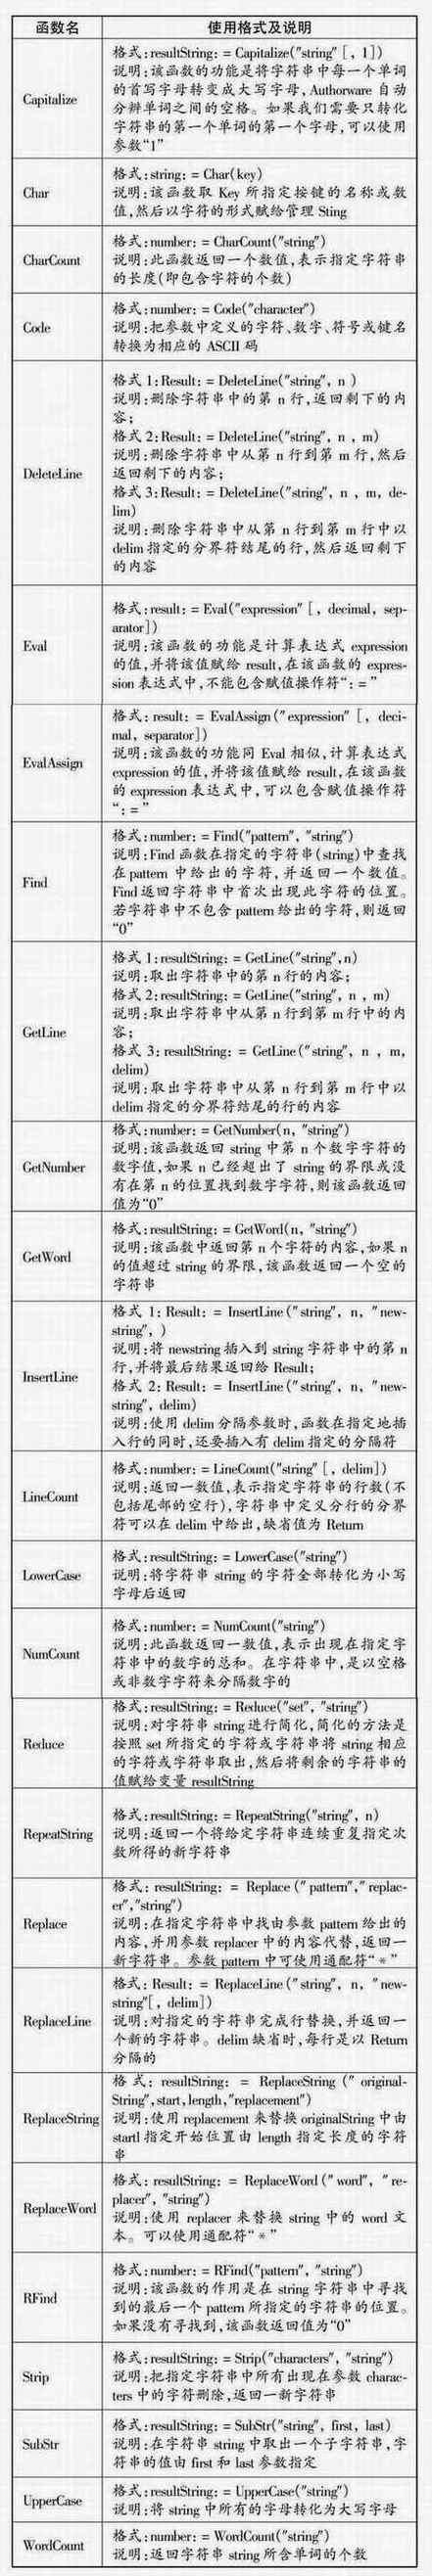 函数名 使用格式及说明
Capitalize
格式:resultString: = Capitalize("string" [, 1])
说明:该函数的功能是将字符串中每一个单词
的首写字母转变成大写字母, Authorware 自动
分辨单词之间的空格。如果我们需要只转化
字符串的第一个单词的第一个字母,可以使用
参数“1”
Char
格式:string: = Char(key)
说明:该函数取 Key 所指定按键的名称或数
值,然后以字符的形式赋给管理 Sting
CharCount
格式:number: = CharCount("string")
说明:此函数返回一个数值,表示指定字符串
的长度(即包含字符的个数)
Code
格式:number: = Code("character")
说明:把参数中定义的字符、数字、符号或键名
转换为相应的 ASCII 码
DeleteLine
格式 1:Result: = DeleteLine("string", n )
说明:删除字符串中的第 n 行,返回剩下的内
容;
格式 2:Result: = DeleteLine("string", n , m)
说明:删除字符串中从第 n 行到第 m 行,然后
返回剩下的内容;
格式 3:Result: = DeleteLine("string", n , m, de-
lim)
说明:删除字符串中从第 n 行到第 m 行中以
delim 指定的分界符结尾的行,然后返回剩下
的内容
Eval
格式:result: = Eval("expression" [, decimal, sep-
arator])
说明:该函数的功能是计算表达式 expression
的值,并将该值赋给 result,在该函数的 expres-
sion 表达式中,不能包含赋值操作符“: = ”
EvalAssign
格式: result: = EvalAssign("expression" [, deci-
mal, separator])
说明:该函数的功能同 Eval 相似,计算表达式
expression 的值,并将该值赋给 result,在该函数
的 expression 表达式中,可以包含赋值操作符
“: = ”
Find
格式:number: = Find("pattern", "string")
说明:Find 函数在指定的字符串(string)中查找
在 pattern 中给出的字符,并返回一个数值。
Find 返回字符串中首次出现此字符的位置。
若字符串中不包含 pattern 给出的字符,则返回
“0”
GetLine
格式 1:resultString: = GetLine("string",n)
说明:取出字符串中的第 n 行的内容;
格式 2:resultString: = GetLine("string", n , m)
说明:取出字符串中从第 n 行到第 m 行中的内
容;
格式 3: resultString: = GetLine("string", n , m,
delim)
说明:取出字符串中从第 n 行到第 m 行中以
delim 指定的分界符结尾的行的内容
GetNumber
格式:number: = GetNumber(n, "string")
说明:该函数返回 string 中第 n 个数字字符的
数字值,如果 n 已经超出了 string 的界限或没
有在第 n 的位置找到数字字符,则该函数返回
值为“0”
GetWord
格式:resultString: = GetWord(n, "string")
说明:该函数中返回第 n 个字符的内容,如果 n
的值超过 string 的界限,该函数返回一个空的
字符串
InsertLine
格式 1: Result: = InsertLine("string", n, "new-
string", )
说明:将 newstring 插入到 string 字符串中的第 n
行,并将最后结果返回给 Result;
格式 2: Result: = InsertLine("string", n, "new-
string", delim)
说明:使用 delim 分隔参数时,函数在指定地插
入行的同时,还要插入有 delim 指定的分隔符
LineCount
格式:number: = LineCount("string" [, delim])
说明:返回一数值,表示指定字符串的行数(不
包括尾部的空行),字符串中定义分行的分界
符可以在 delim 中给出,缺省值为 Return
LowerCase
格式:resultString: = LowerCase("string")
说明:将字符串 string 的字符全部转化为小写
字母后返回
NumCount
格式:number: = NumCount("string")
说明:此函数返回一数值,表示出现在指定字
符串中的数字的总和。在字符串中,是以空格
或非数字字符来分隔数字的
Reduce
格式:resultString: = Reduce("set", "string")
说明:对字符串 string 进行简化,简化的方法是
按照 set 所指定的字符或字符串将 string 相应
的字符或字符串取出,然后将剩余的字符串的
值赋给变量 resultString
RepeatString
格式:resultString: = RepeatString("string", n)
说明:返回一个将给定字符串连续重复指定次
数所得的新字符串
Replace
格式: resultString: = Replace ("pattern","replac-
er","string")
说明:在指定字符串中找由参数 pattern 给出的
内容,并用参数 replacer 中的内容代替,返回一
新字符串。参数 pattern 中可使用通配符“*”
ReplaceLine
格式: Result: = ReplaceLine("string", n, "new-
string"[, delim])
说明:对指定的字符串完成行替换,并返回一
个新的字符串。delim 缺省时,每行是以 Return
分隔的
ReplaceString
格式: resultString: = ReplaceString (" original-
String",start,length,"replacement")
说明:使用 replacement 来替换 originalString 中由
startl 指定开始位置由 length 指定长度的字符
串
ReplaceWord
格式: resultString: = ReplaceWord("word", "re-
placer", "string")
说明:使用 replacer 来替换 string 中的 word 文
本。可以使用通配符“*”
RFind
格式:number: = RFind("pattern", "string")
说明:该函数的作用是在 string 字符串中寻找
到的最后一个 pattern 所指定的字符串的位置。
如果没有寻找到,该函数返回值为“0”
Strip
格式:resultString: = Strip("characters", "string")
说明:把指定字符串中所有出现在参数 charac-
ters 中的字符删除,返回一新字符串
SubStr
格式:resultString: = SubStr("string", first, last)
说明:在字符串 string 中取出一个子字符串,字
符串的值由 first 和 last 参数指定
UpperCase
格式:resultString: = UpperCase("string")
说明:将 string 中所有的字母转化为大写字母
WordCount
格式:number: = WordCount("string")
说明:返回字符串 string 所含单词的个数